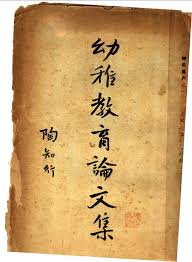 幼稚教育論文集
陶知行